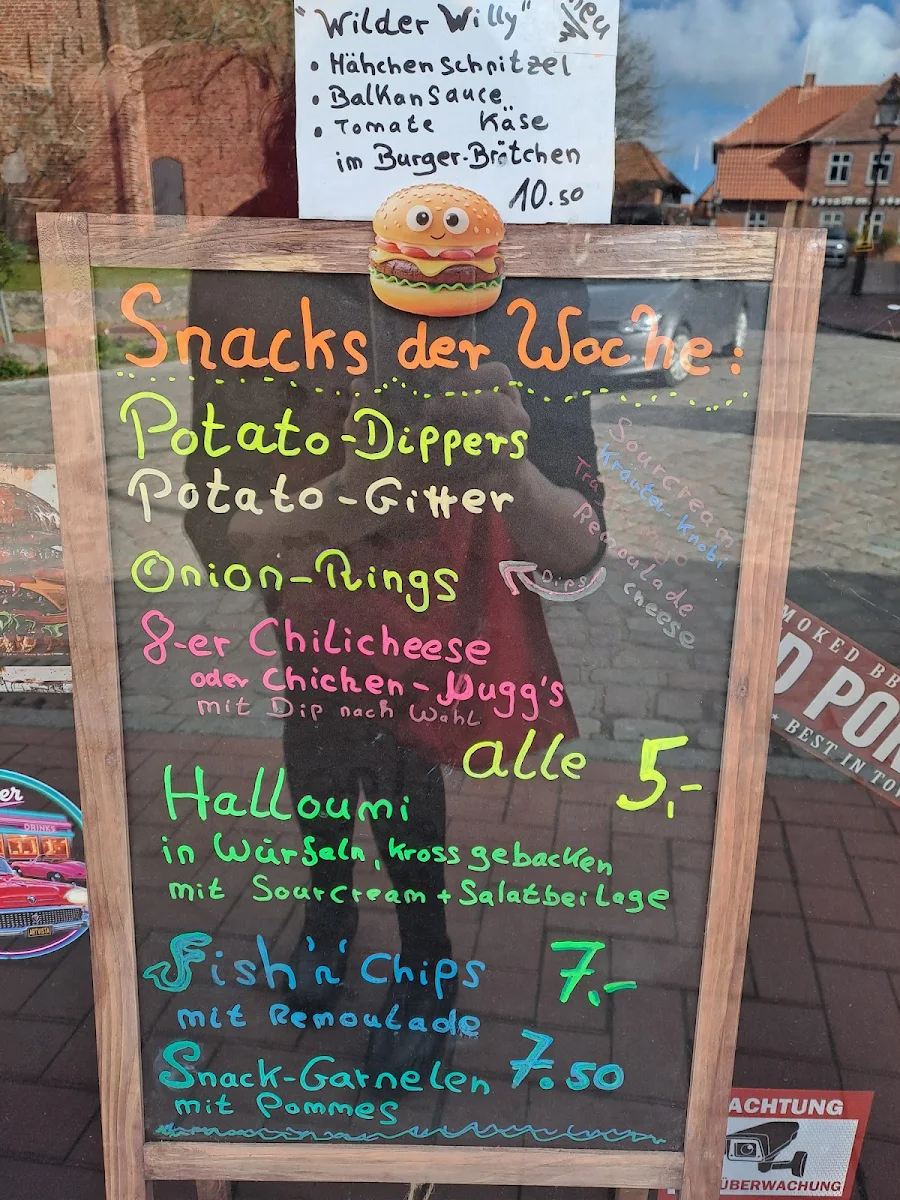 "Wilder Willy"
Neu
• Hähchenschnitzel
• BalkanSauce
• Tomate Käse
im Burger-Brötchen
10.50
Snacks der Woche:
Potato-Dippers
Potato-Gitter
Onion-Rings
Sourcream
Kräuter-Knobi
Remoulade
cheese
Dips
8-er Chilicheese
oder Chicken-Nugg's
mit Dip nach Wahl
alle 5,-
Halloumi
in Würfeln, kross gebacken
mit Sourcream + Salatbeilage
7.-
Fish 'n' Chips
mit Remoulade
7.50
Snack-Garnelen
mit Pommes
MOKED BB
D POR
BEST IN TOW
er
DRINKS
ACHTUNG
ÜBERWACHUNG